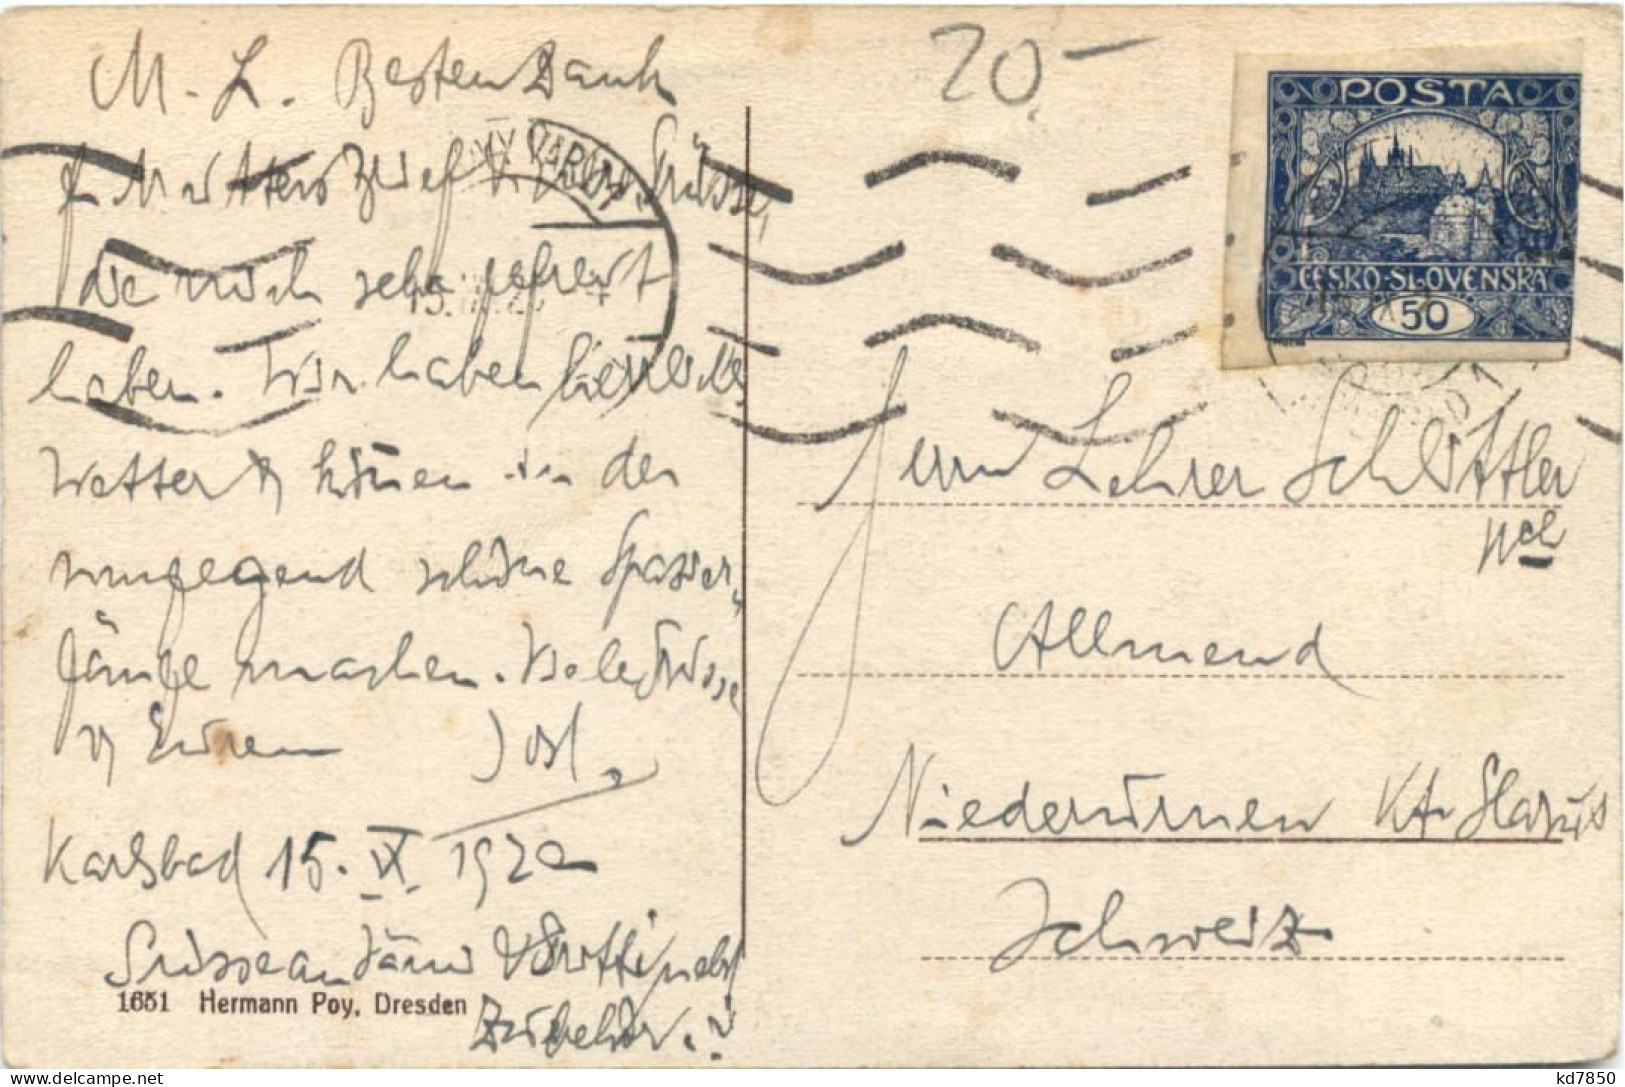 M. L. Besten Dank
f. Mutters Brief u. Eure Grüsse,
die mich sehr gefreut
haben. Wir haben herrliches
Wetter & können in der
Umgegend schöne Spazier-
gänge machen. Viele Grüsse
v. Eurem Jost.
Karlsbad 15. IX. 1920
Grüsse an Däni & Gottfried
Zubehör.
1651 Hermann Poy, Dresden
20.-
POSTA
ČESKO-SLOVENSKÁ
50
KARLOVY VARY
Herrn Lehrer Schlittler
Allmend
Niederurnen Kt. Glarus
Schweiz
kd7850